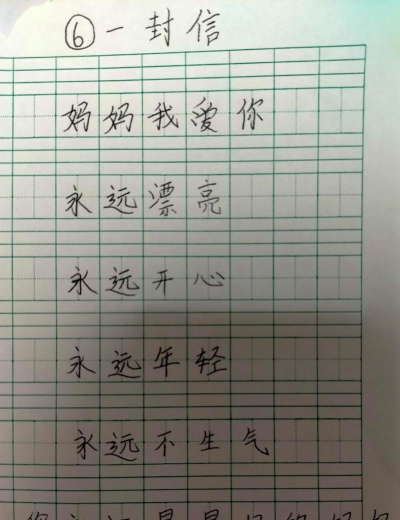 ⑥一封信
妈妈我爱你
永远漂亮
永远开心
永远年轻
永远不生气